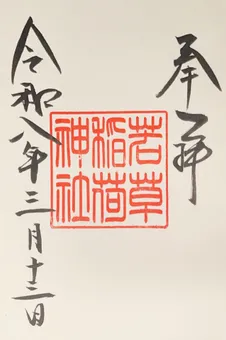 奉拝
若草
稲荷
神社
令和八年三月十三日